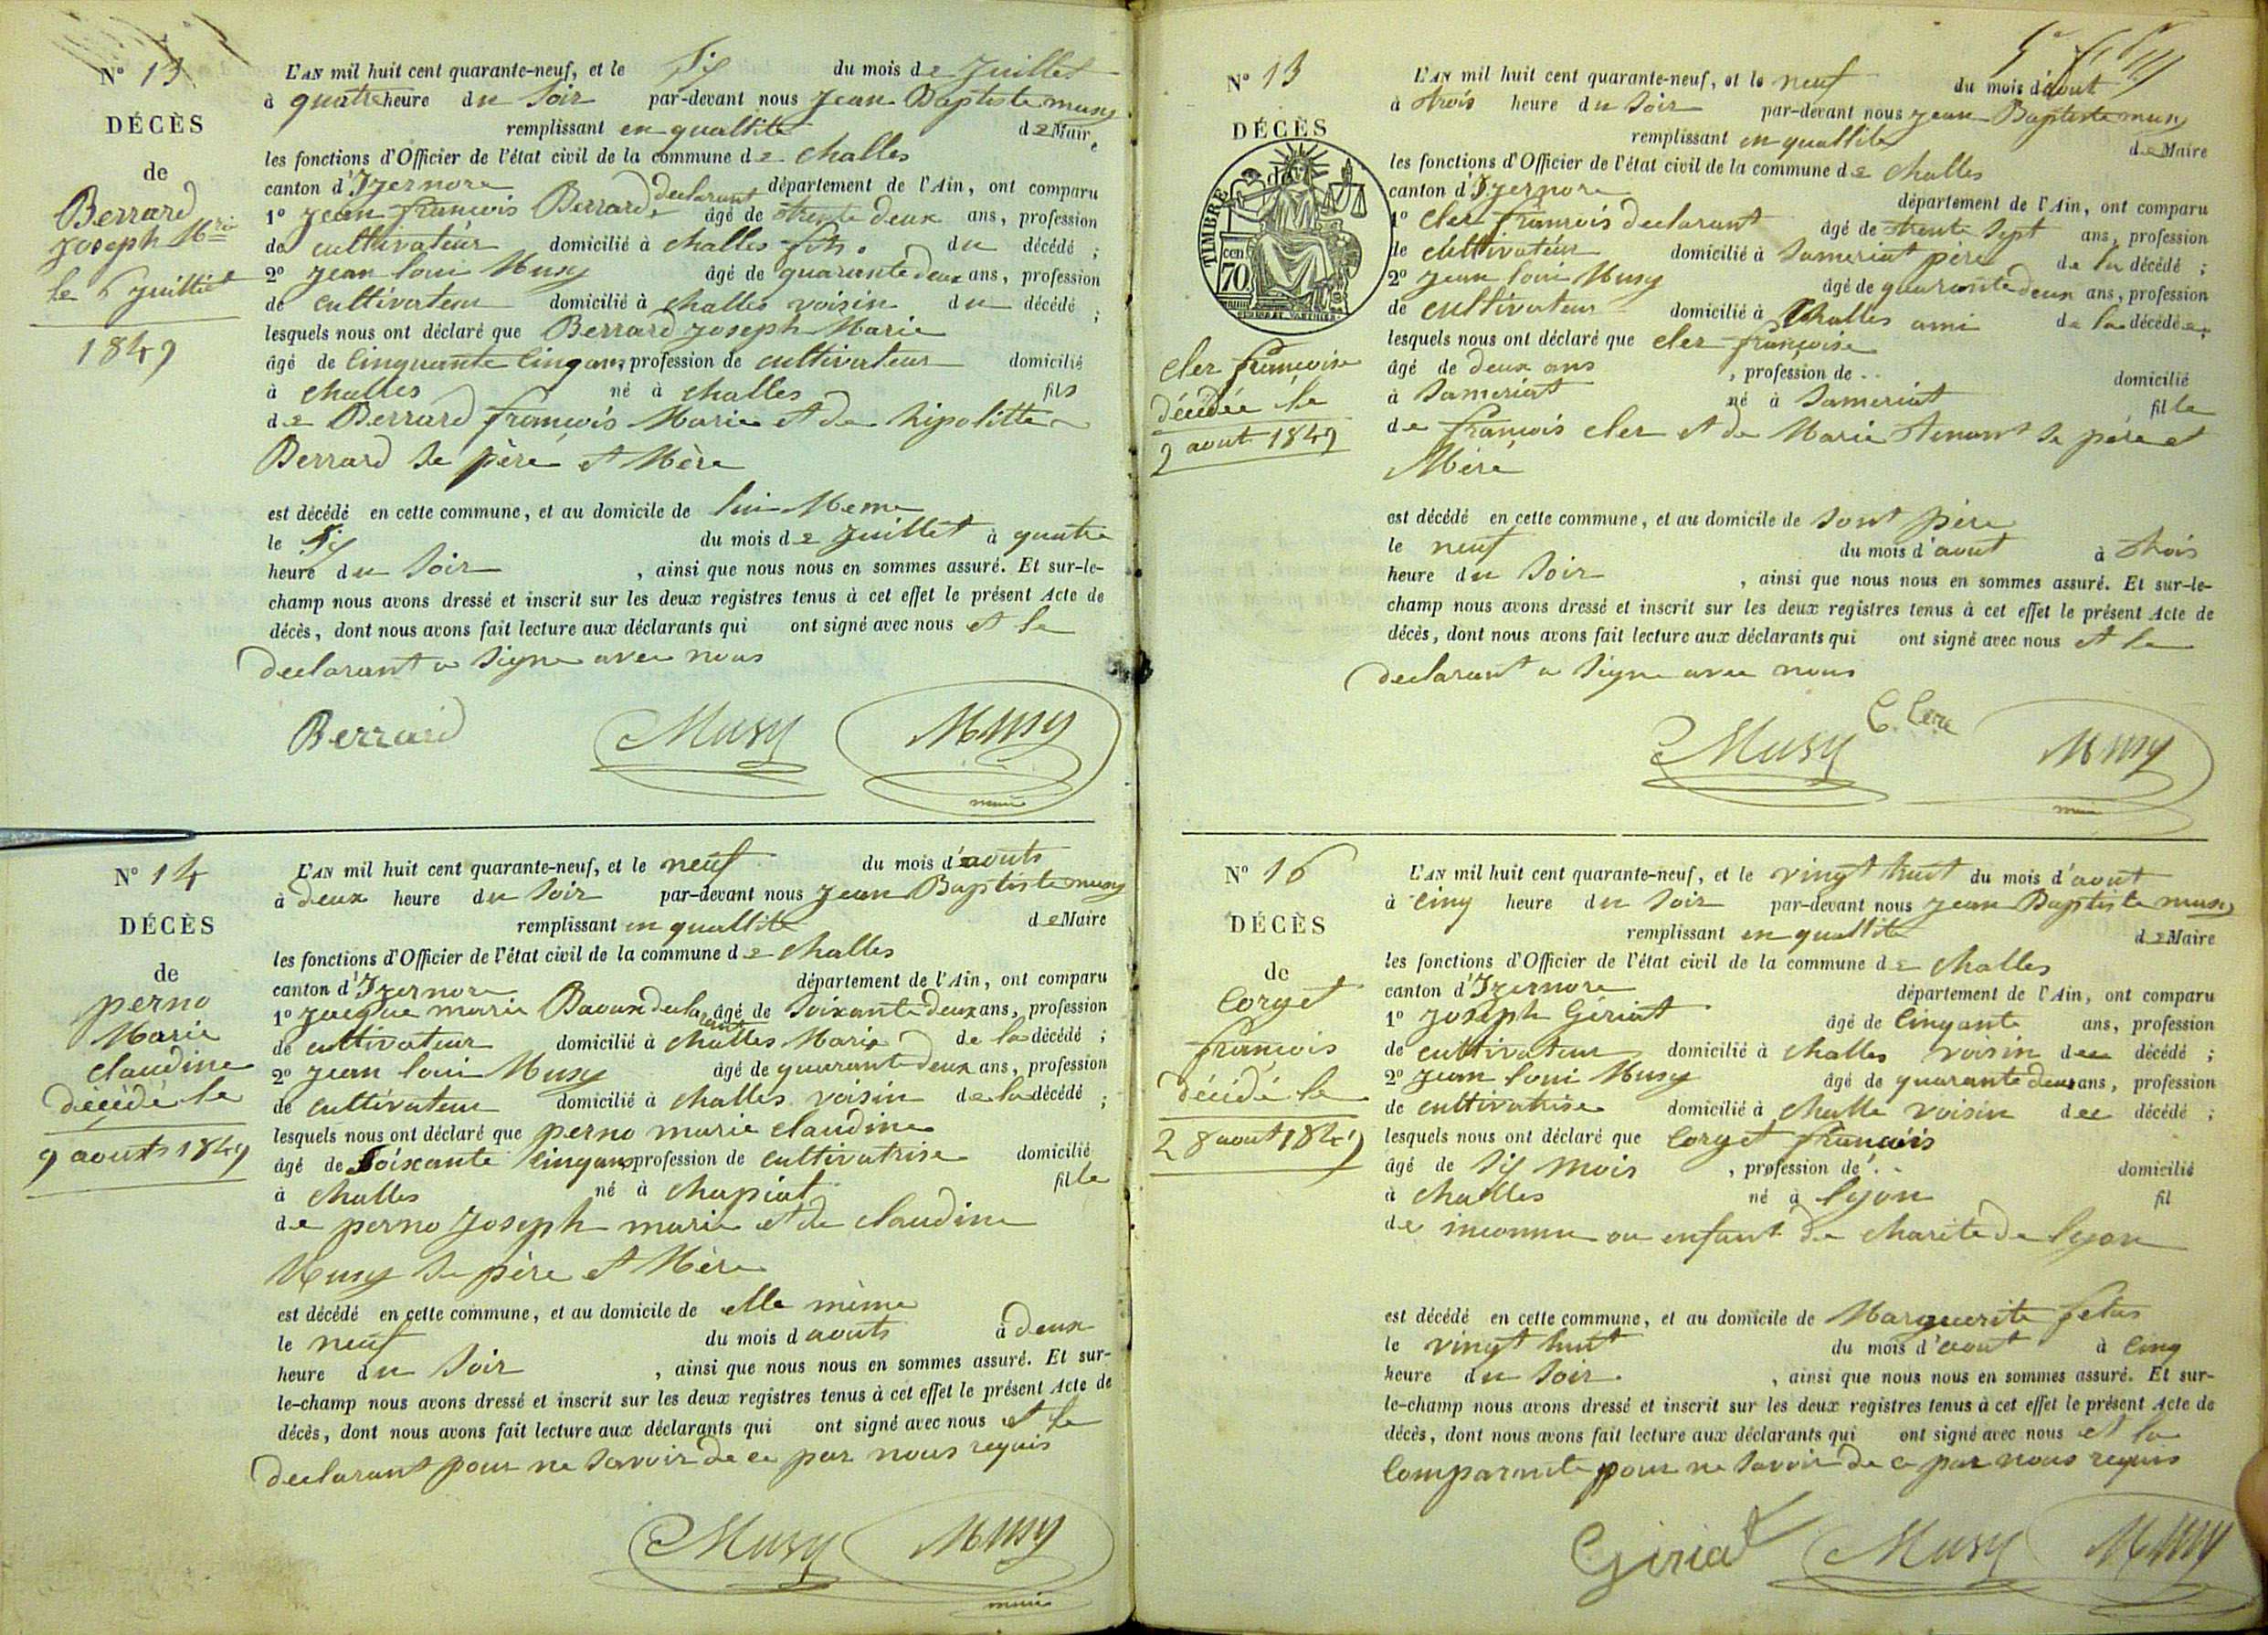 N° 13
DÉCÈS
de
Berrard
Joseph Mrie
le 6 juilliet
1849
L'AN mil huit cent quarante-neuf, et le Six du mois de Juillet
à quatre heure du Soir par-devant nous Jean Baptiste musy
remplissant en quallité de Maire
les fonctions d'Officier de l'état civil de la commune de challes
canton d'Izernore département de l'Ain, ont comparu
1° Jean francois Berrard declarant âgé de trente deux ans, profession
de cultivateur domicilié à challes fils du décédé ;
2° Jean loui Musy âgé de quarante deux ans, profession
de cultivateur domicilié à challes voisin du décédé ;
lesquels nous ont déclaré que Berrard Joseph Marie
âgé de Cinquante Cinq ans, profession de cultivateur domicilié
à challes né à challes fils
de Berrard francois Marie et de hipolitte
Berrard Se père et Mère
est décédé en cette commune, et au domicile de lui Meme
le Six du mois de Juillet à quatre
heure du Soir , ainsi que nous nous en sommes assuré. Et sur-le-
champ nous avons dressé et inscrit sur les deux registres tenus à cet effet le présent Acte de
décès, dont nous avons fait lecture aux déclarants qui ont signé avec nous et le
declarant a Signe avec nous
Berrard Musy Musy
maire
N° 14
DÉCÈS
de
perno
Marie
claudine
décédé le
9 aouts 1849
L'AN mil huit cent quarante-neuf, et le neuf du mois d'aouts
à deux heure du Soir par-devant nous Jean Baptiste musy
remplissant en quallité de Maire
les fonctions d'Officier de l'état civil de la commune de challes
canton d'Izernore département de l'Ain, ont comparu
1° Jacque marie Bavoux declarant âgé de Soixante deux ans, profession
de cultivateur domicilié à challes Marie de la décédé ;
2° Jean loui Musy âgé de quarante deux ans, profession
de cultivateur domicilié à challes voisin de la décédé ;
lesquels nous ont déclaré que perno marie claudine
âgé de Soixante Cinq ans profession de cultivatrise domicilié
à challes né à chapiat fille
de perno Joseph marie et de claudine
Musy Se père et Mère
est décédé en cette commune, et au domicile de elle mème
le neuf du mois d aouts à deux
heure du Soir , ainsi que nous nous en sommes assuré. Et sur-
le-champ nous avons dressé et inscrit sur les deux registres tenus à cet effet le présent Acte de
décès, dont nous avons fait lecture aux déclarants qui ont signé avec nous et le
declarant pour ne Savoir de ce par nous requis
Musy Musy
maire
N° 13
DÉCÈS
de
TIMBRE
cen
70
cler francoise
décédée le
9 aout 1849
L'AN mil huit cent quarante-neuf, et le neuf du mois d'aout
à trois heure du Soir par-devant nous Jean Baptiste musy
remplissant en quallité de Maire
les fonctions d'Officier de l'état civil de la commune de challes
canton d'Izernore département de l'Ain, ont comparu
1° cler francois declarant âgé de trente Sept ans, profession
de cultivateur domicilié à Sameriat père de la décédé ;
2° Jean loui Musy âgé de quarante deux ans, profession
de cultivateur domicilié à Challes ami de la décédée ;
lesquels nous ont déclaré que cler francoise
âgé de deux ans , profession de domicilié
à Sameriat né à Sameriat fille
de francois cler et de Marie tenant Se père et
Mére
est décédé en cette commune, et au domicile de Sont père
le neuf du mois d'aout à trois
heure du Soir , ainsi que nous nous en sommes assuré. Et sur-le-
champ nous avons dressé et inscrit sur les deux registres tenus à cet effet le présent Acte de
décès, dont nous avons fait lecture aux déclarants qui ont signé avec nous et le
declarant a Signe avec nous
Musy Musy
N° 16
DÉCÈS
de
Corget
francois
décédé le
28 aout 1849
L'AN mil huit cent quarante-neuf, et le vingt huit du mois d'aout
à Cinq heure du Soir par-devant nous Jean Baptiste musy
remplissant en quallité de Maire
les fonctions d'Officier de l'état civil de la commune de challes
canton d'Izernore département de l'Ain, ont comparu
1° Joseph Gériat âgé de Cinqante ans, profession
de cultivateur domicilié à challes voisin du décédé ;
2° Jean loui Musy âgé de quarante deux ans, profession
de cultivatrise domicilié à challe voisin du décédé ;
lesquels nous ont déclaré que Corget francois
âgé de Six Mois , profession de domicilié
à challes né à lyon fil
de inconnu ou enfant de charite de lyon
est décédé en cette commune, et au domicile de Marguerite fetas
le vingt huit du mois d'aout à Cinq
heure du Soir , ainsi que nous nous en sommes assuré. Et sur-
le-champ nous avons dressé et inscrit sur les deux registres tenus à cet effet le présent Acte de
décès, dont nous avons fait lecture aux déclarants qui ont signé avec nous et la
Comparante pour ne Savoir de ce par nous requis
Giriat Musy Musy